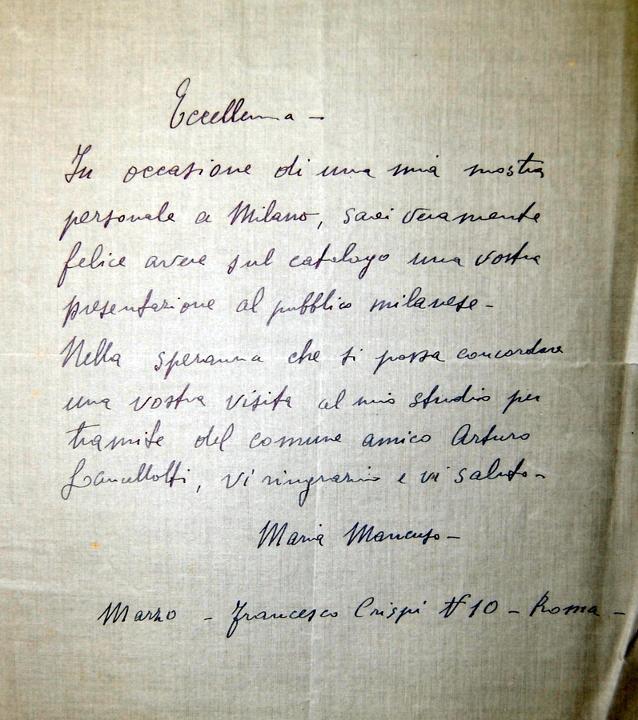 Eccellenza –
In occasione di una mia mostra
personale a Milano, sarei veramente
felice avere sul catalogo una vostra
presentazione al pubblico milanese –
Nella speranza che si possa concordare
una vostra visita al mio studio per
tramite del comune amico Arturo
Lancellotti, vi ringrazio e vi saluto –
Maria Mancuso –
Marzo – Francesco Crispi # 10 – Roma –